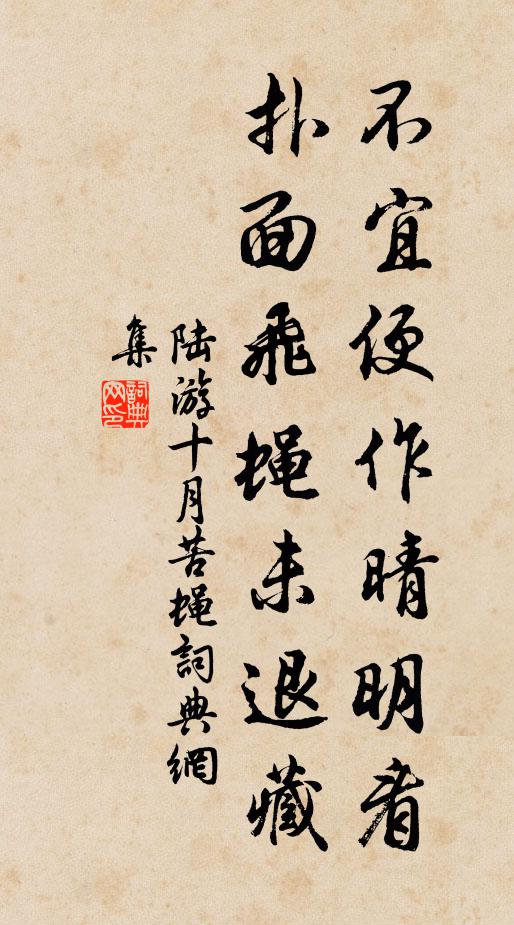 不宜便作晴明看
扑面飛蝇未退藏
陆游十月苦蝇詞典網
集
詞典
网印